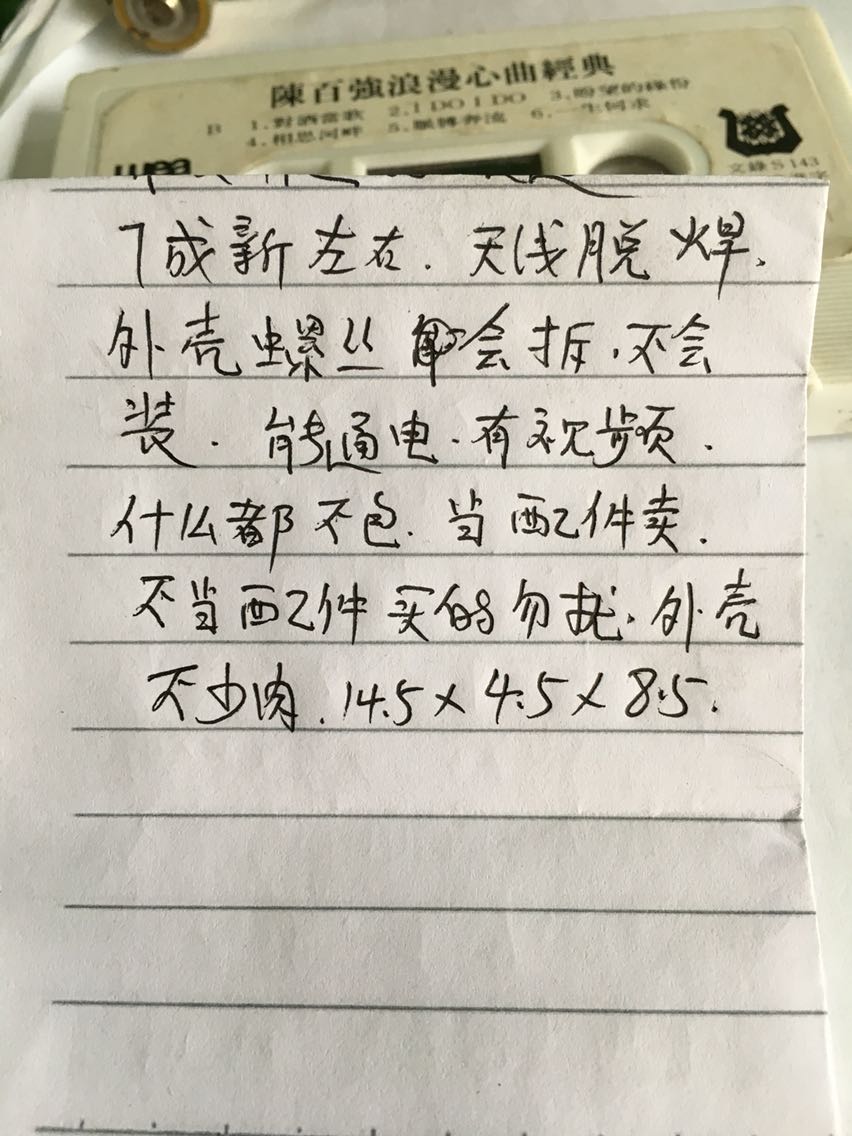 陳百強浪漫心曲經典
B 1.對酒當歌 2.I DO I DO 3.盼望的緣份
4.相思河畔 5.脈轉奔流 6.一生何求
wea
文錄S143
7成新左右.天线脱焊.
外壳螺丝会拆.不会
装.能通电.有视频.
什么都不包.当配件卖.
不当配件买的勿扰.外壳
不少肉.14.5×4.5×8.5.